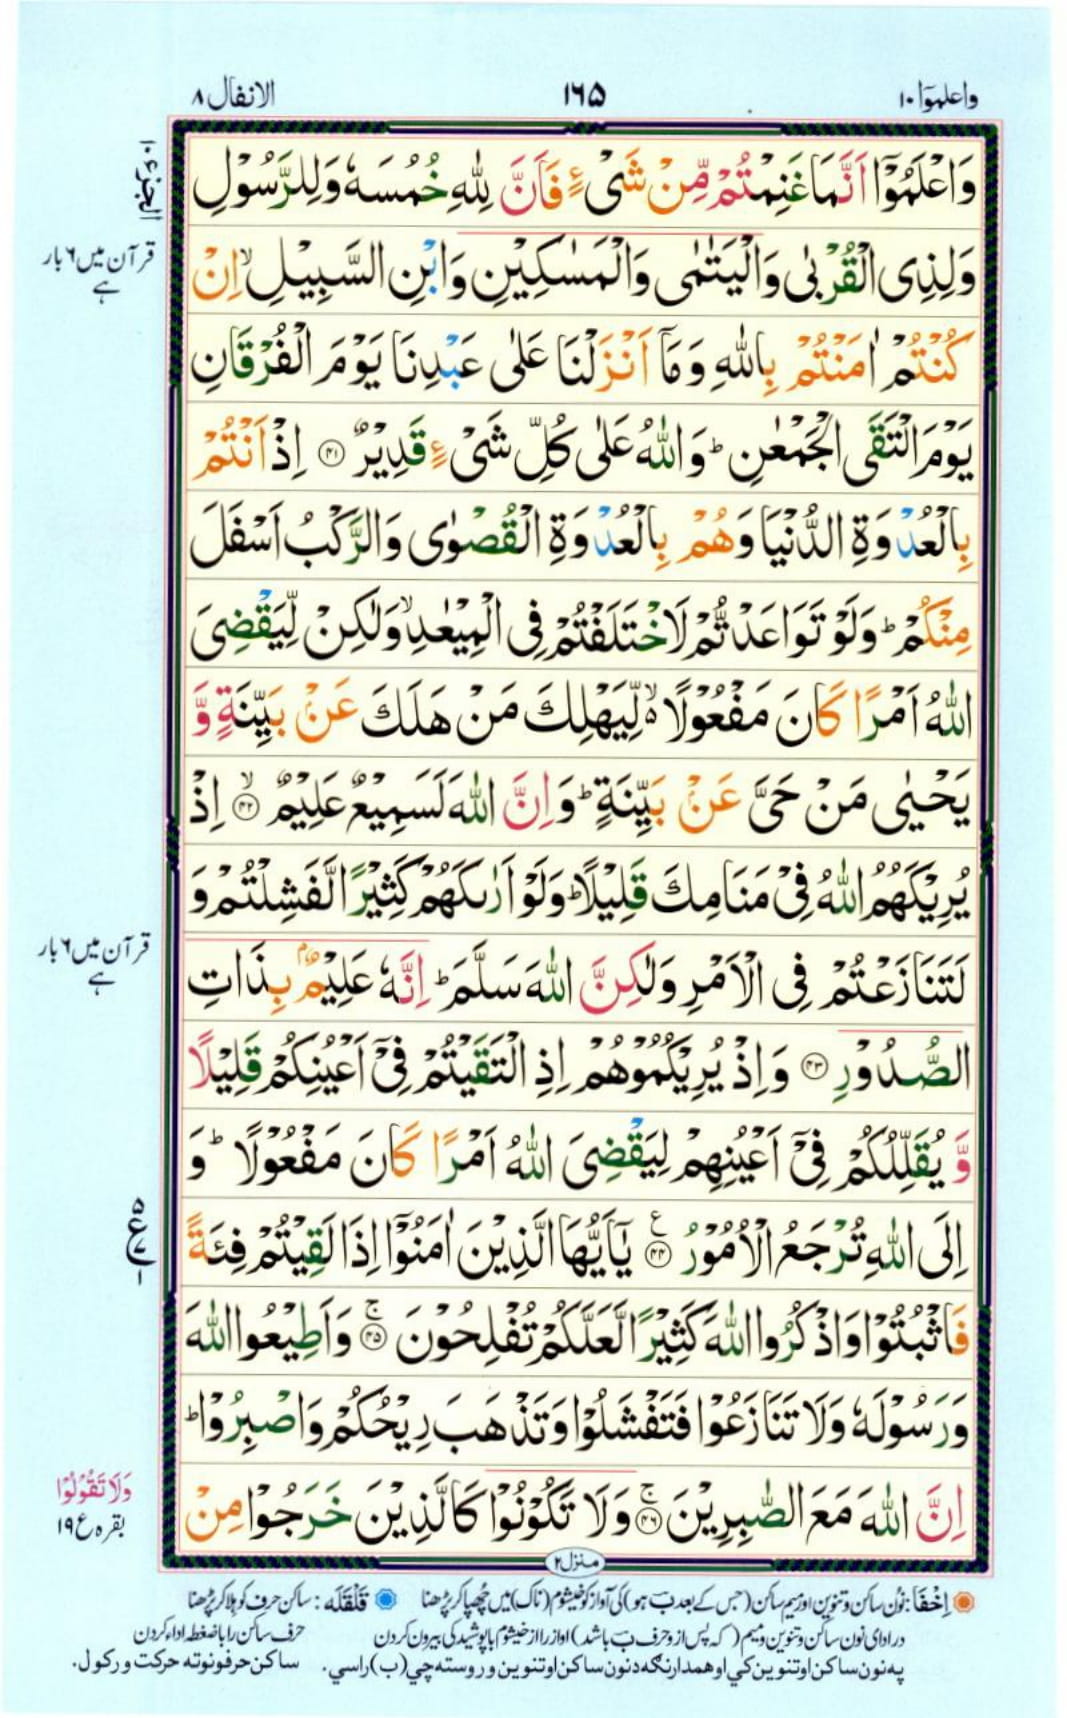 واعلموۤا ۱۰
۱۶۵
الانفال ۸
وَاعْلَمُوْۤا اَنَّمَا غَنِمْتُمْ مِّنْ شَیْءٍ فَاَنَّ لِلّٰهِ خُمُسَهٗ وَلِلرَّسُوْلِ
وَلِذِی الْقُرْبٰی وَالْیَتٰمٰی وَالْمَسٰكِیْنِ وَابْنِ السَّبِیْلِ ۙ اِنْ
كُنْتُمْ اٰمَنْتُمْ بِاللّٰهِ وَمَاۤ اَنْزَلْنَا عَلٰی عَبْدِنَا یَوْمَ الْفُرْقَانِ
یَوْمَ الْتَقَی الْجَمْعٰنِ ؕ وَاللّٰهُ عَلٰی كُلِّ شَیْءٍ قَدِیْرٌ ۴۱ اِذْ اَنْتُمْ
بِالْعُدْوَةِ الدُّنْیَا وَهُمْ بِالْعُدْوَةِ الْقُصْوٰی وَالرَّكْبُ اَسْفَلَ
مِنْكُمْ ؕ وَلَوْ تَوَاعَدْتُّمْ لَاخْتَلَفْتُمْ فِی الْمِیْعٰدِ ۙ وَلٰكِنْ لِّیَقْضِیَ
اللّٰهُ اَمْرًا كَانَ مَفْعُوْلًا ۙ۬ لِّیَهْلِكَ مَنْ هَلَكَ عَنْۢ بَیِّنَةٍ وَّ
یَحْیٰی مَنْ حَیَّ عَنْۢ بَیِّنَةٍ ؕ وَاِنَّ اللّٰهَ لَسَمِیْعٌ عَلِیْمٌ ۙ ۴۲ اِذْ
یُرِیْكَهُمُ اللّٰهُ فِیْ مَنَامِكَ قَلِیْلًا ؕ وَلَوْ اَرٰىكَهُمْ كَثِیْرًا لَّفَشِلْتُمْ وَ
لَتَنَازَعْتُمْ فِی الْاَمْرِ وَلٰكِنَّ اللّٰهَ سَلَّمَ ؕ اِنَّهٗ عَلِیْمٌۢ بِذَاتِ
الصُّدُوْرِ ۴۳ وَاِذْ یُرِیْكُمُوْهُمْ اِذِ الْتَقَیْتُمْ فِیْۤ اَعْیُنِكُمْ قَلِیْلًا
وَّ یُقَلِّلُكُمْ فِیْۤ اَعْیُنِهِمْ لِیَقْضِیَ اللّٰهُ اَمْرًا كَانَ مَفْعُوْلًا ؕ وَ
اِلَی اللّٰهِ تُرْجَعُ الْاُمُوْرُ ۴۴ ع یٰۤاَیُّهَا الَّذِیْنَ اٰمَنُوْۤا اِذَا لَقِیْتُمْ فِئَةً
فَاثْبُتُوْا وَاذْكُرُوا اللّٰهَ كَثِیْرًا لَّعَلَّكُمْ تُفْلِحُوْنَ ۚ ۴۵ وَاَطِیْعُوا اللّٰهَ
وَرَسُوْلَهٗ وَلَا تَنَازَعُوْا فَتَفْشَلُوْا وَتَذْهَبَ رِیْحُكُمْ وَاصْبِرُوْا ؕ
اِنَّ اللّٰهَ مَعَ الصّٰبِرِیْنَ ۚ ۴۶ وَلَا تَكُوْنُوْا كَالَّذِیْنَ خَرَجُوْا مِنْ
الجزء ۱۰
قرآن میں ۶ بار
ہے
قرآن میں ۶ بار
ہے
۵
ع
۱
وَلَا تَقُوْلُوْا
بقرہ ع ۱۹
منزل ۲
اِخْفَا: نُون ساکن وتنوین اور میم ساکن (جس کے بعد ب ہو) کی آواز کو خیشوم (ناک) میں چُھپا کر پڑھنا
قَلْقَلَه: ساکن حرف کو ہلا کر پڑھنا
در ادای نون ساکن وتنوین ومیم (که پس از و حرف ب باشد) اواز را از خیشوم با پوشیدگی بیرون کردن
حرف ساکن را با ضغطه اداء کردن
په نون ساکن او تنوین کي او همدارنګه د نون ساکن او تنوین وروسته چي (ب) راسي.
ساکن حرفونو ته حرکت ورکول.